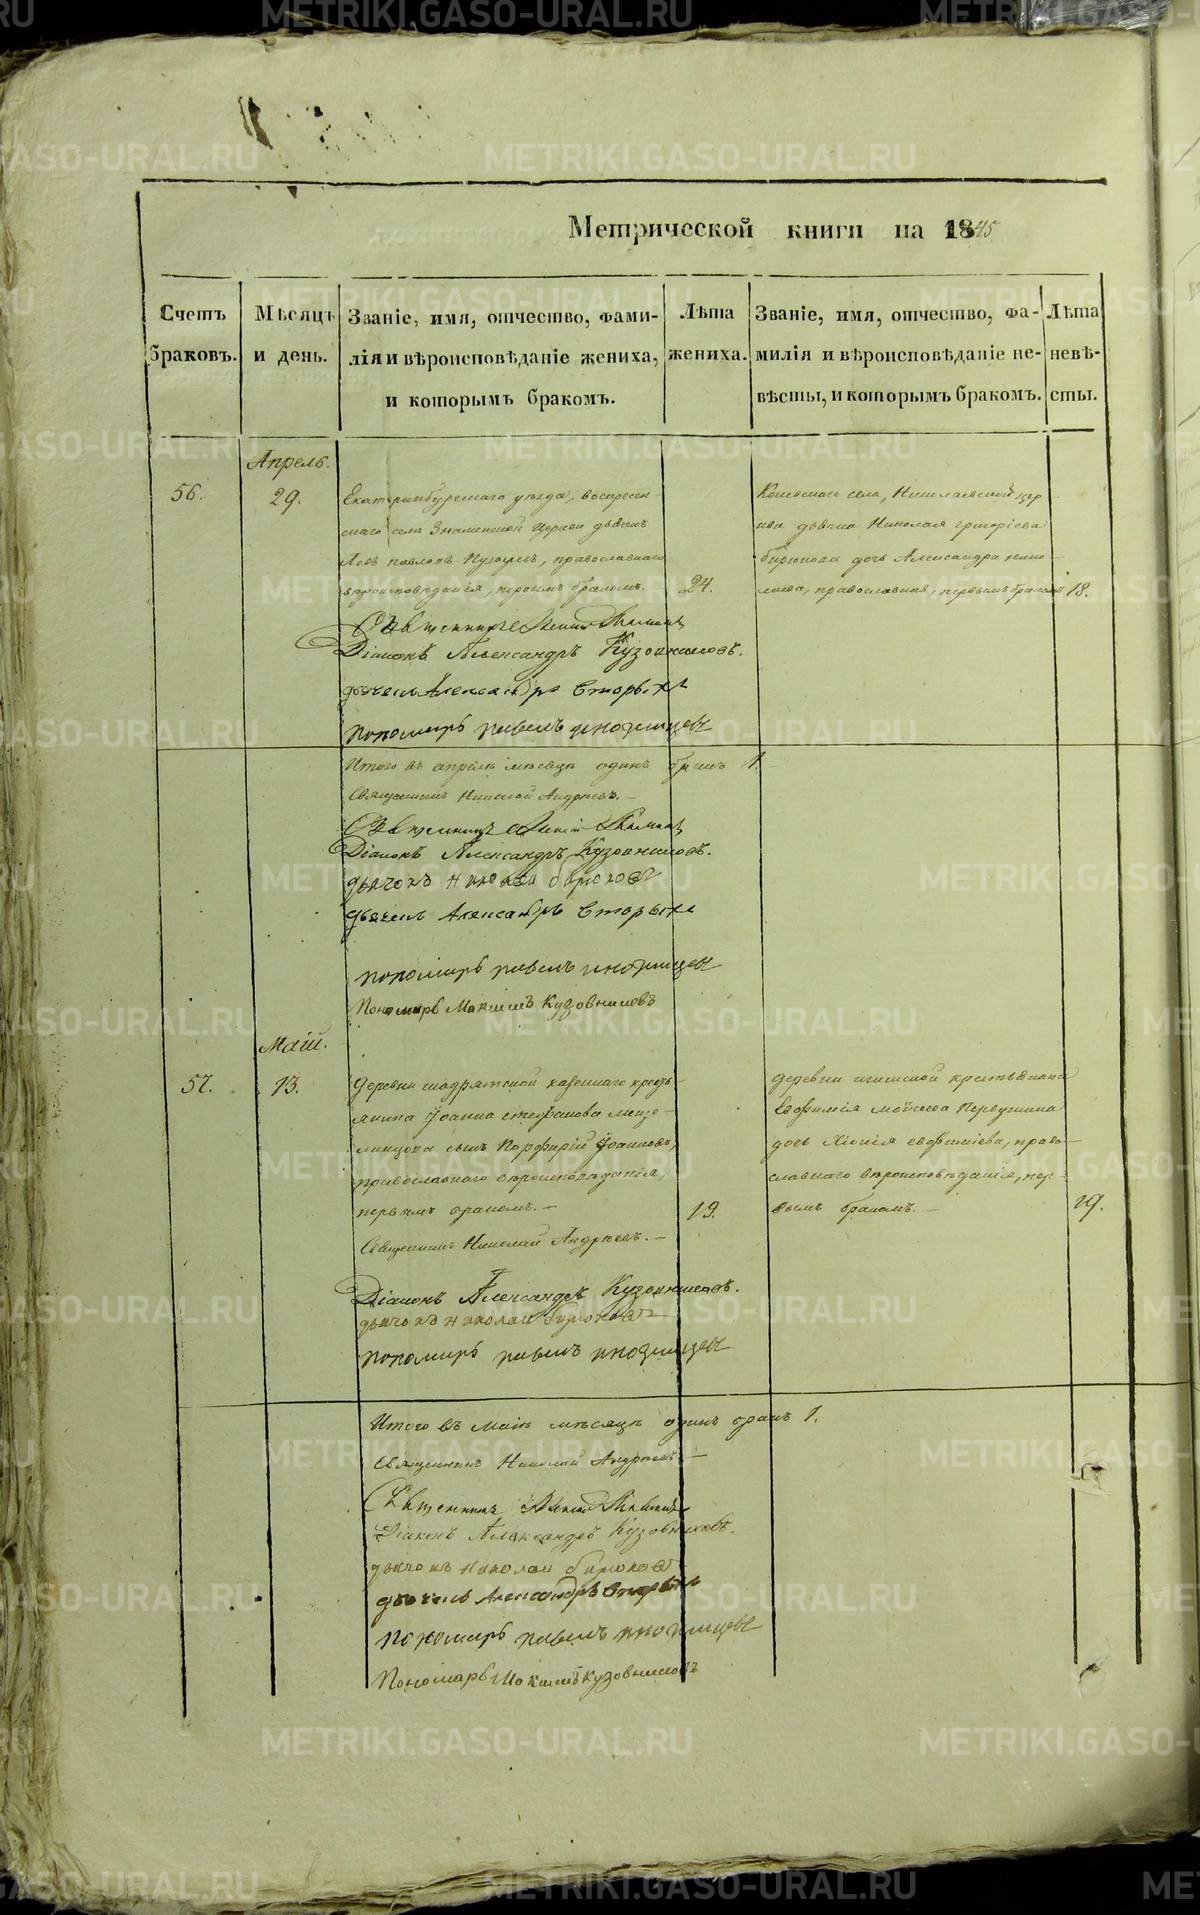 Метрической книги на 1845
Счетъ браковъ.
Мѣсяцъ и день.
Званіе, имя, отчество, фами-
лія и вѣроисповѣданіе жениха,
и которымъ бракомъ.
Лѣта жениха.
Званіе, имя, отчество, фа-
милія и вѣроисповѣданіе не-
вѣсты, и которымъ бракомъ.
Лѣта невѣ-
сты.
Апрель.
56.
29.
Екатеринбургскаго уѣзда, воскресен-
скаго села Знаменской церкви дьячекъ
павловъ православнаго
вѣроисповѣданія, первымъ бракомъ.
24.
села, Николаевской цер
кви дьячка Николая григоріева
бирюкова дочь Александра нико
лаева, православная, первымъ бракомъ
18.
Священникъ
Діаконъ Александръ Кузовниковъ.
дьячекъ Александръ
пономарь павелъ иноземцевъ
Итого въ апрелѣ мѣсяцѣ одинъ бракъ 1.
Священникъ Николай Андреевъ.
Священникъ
Діаконъ Александръ Кузовниковъ.
дьячокъ николай бирюковъ
дьячекъ Александръ
пономарь павелъ иноземцевъ
Пономарь Максимъ Кузовниковъ
Маій.
57.
13.
Деревни казеннаго кресть-
янина Іоанна стефанова
сынъ Порфирій Іоанновъ,
православнаго вѣроисповѣданія,
первымъ бракомъ.
19.
деревни крестьянина
Евфимія моисеева Первушина
дочь евфиміева, право-
славнаго вѣроисповѣданія, пер-
вымъ бракомъ.
19.
Священникъ Николай Андреевъ.
Діаконъ Александръ Кузовниковъ.
дьячокъ николай бирюковъ
пономарь павелъ иноземцевъ
Итого въ маіѣ мѣсяцѣ одинъ бракъ 1.
Священникъ Николай Андреевъ
Священникъ
Діаконъ Александръ Кузовниковъ.
дьячокъ николай бирюковъ
дьячекъ Александръ
пономарь павелъ иноземцевъ
Пономарь Максимъ Кузовниковъ
METRIKI.GASO-URAL.RU